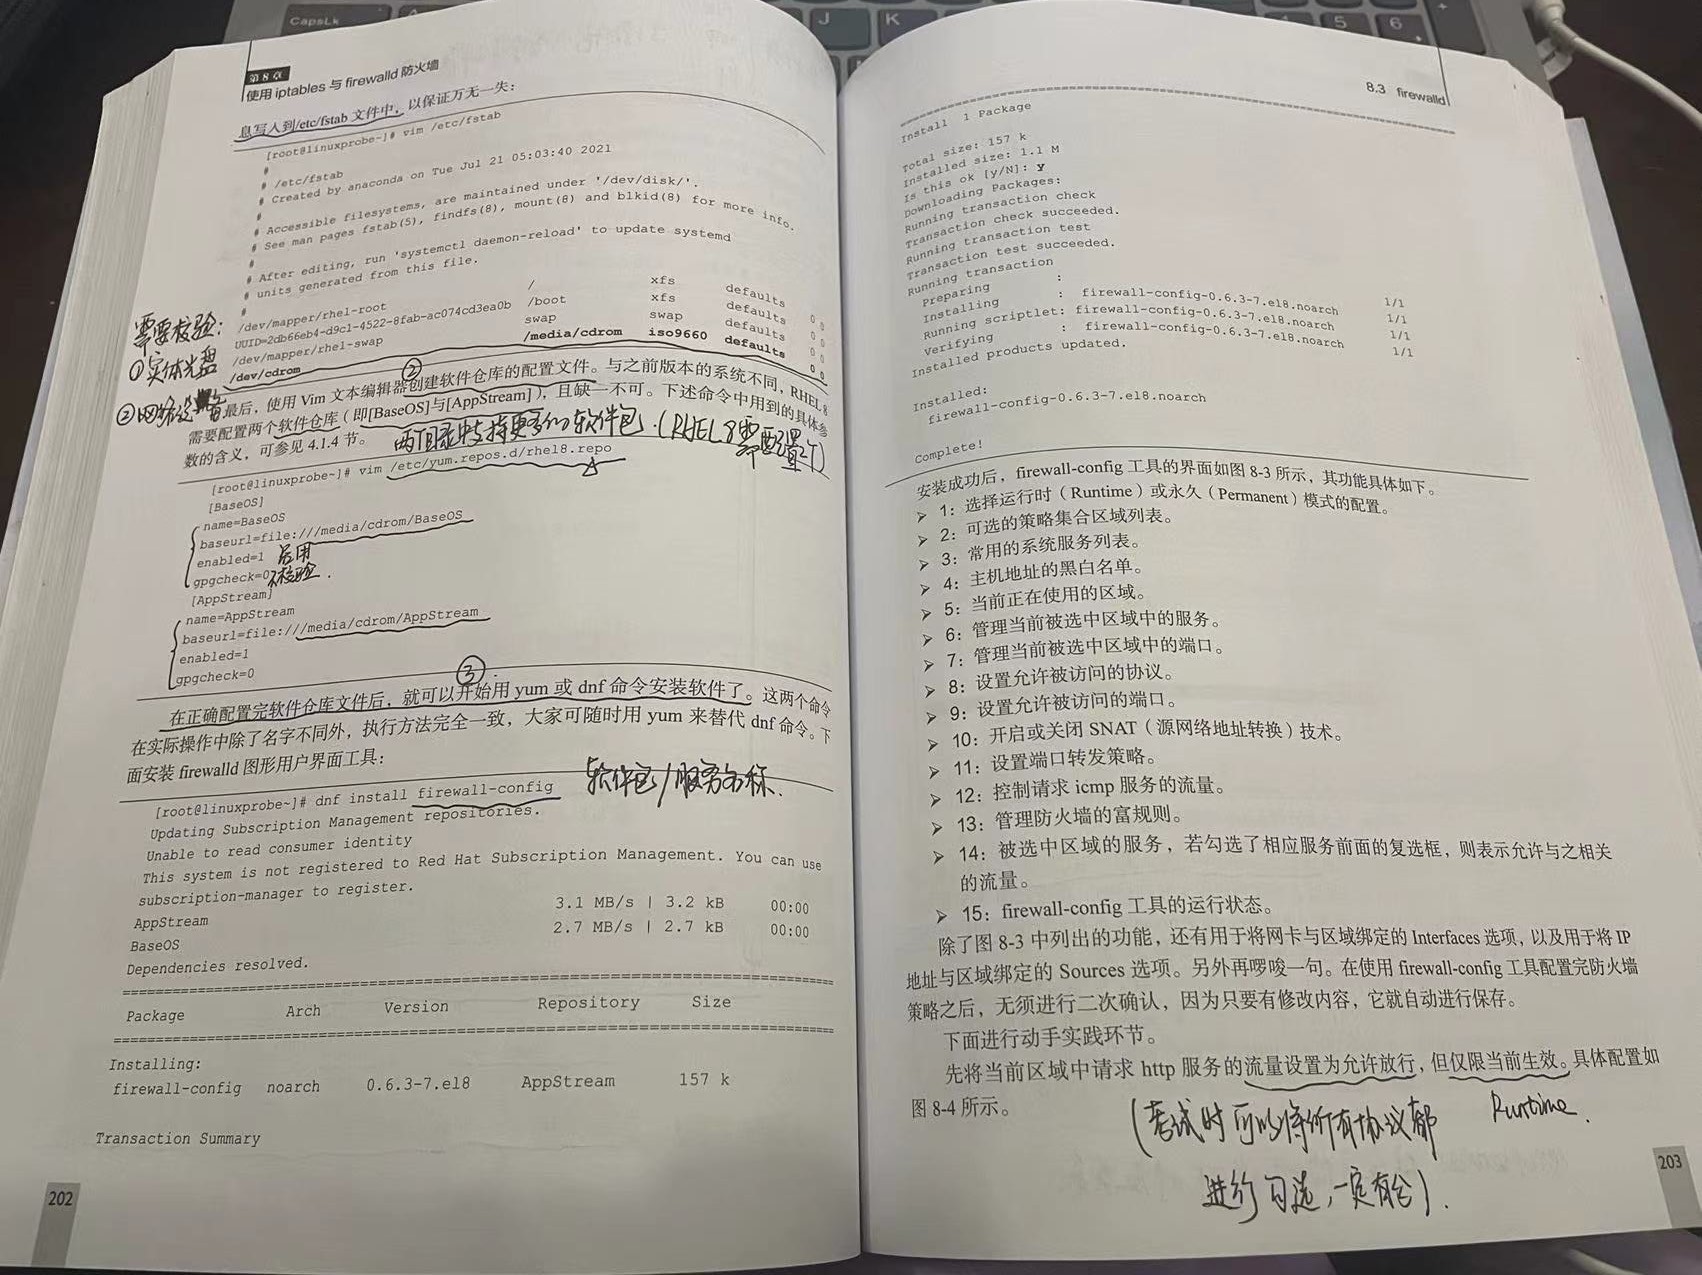 第8章
使用 iptables 与 firewalld 防火墙
息写入到/etc/fstab 文件中，以保证万无一失：
[root@linuxprobe~]# vim /etc/fstab
#
# /etc/fstab
# Created by anaconda on Tue Jul 21 05:03:40 2021
#
# Accessible filesystems, are maintained under '/dev/disk/'.
# See man pages fstab(5), findfs(8), mount(8) and blkid(8) for more info.
#
# After editing, run 'systemctl daemon-reload' to update systemd
# units generated from this file.
#
/dev/mapper/rhel-root / xfs defaults 0 0
UUID=2db66eb4-d9c1-4522-8fab-ac074cd3ea0b /boot xfs defaults 0 0
/dev/mapper/rhel-swap swap swap defaults 0 0
/dev/cdrom /media/cdrom iso9660 defaults 0 0
需要校验：
①实体光盘
②网络设置
②
最后，使用 Vim 文本编辑器创建软件仓库的配置文件。与之前版本的系统不同，RHEL 8
需要配置两个软件仓库（即[BaseOS]与[AppStream]），且缺一不可。下述命令中用到的具体参
数的含义，可参见 4.1.4 节。
两个目录支持更多的软件包.(RHEL 8需配置2个)
[root@linuxprobe~]# vim /etc/yum.repos.d/rhel8.repo
[BaseOS]
name=BaseOS
baseurl=file:///media/cdrom/BaseOS
enabled=1 启用
gpgcheck=0 不校验.
[AppStream]
name=AppStream
baseurl=file:///media/cdrom/AppStream
enabled=1
gpgcheck=0
③
在正确配置完软件仓库文件后，就可以开始用 yum 或 dnf 命令安装软件了。这两个命令
在实际操作中除了名字不同外，执行方法完全一致，大家可随时用 yum 来替代 dnf 命令。下
面安装 firewalld 图形用户界面工具：
软件包/服务名称.
[root@linuxprobe~]# dnf install firewall-config
Updating Subscription Management repositories.
Unable to read consumer identity
This system is not registered to Red Hat Subscription Management. You can use
subscription-manager to register.
AppStream 3.1 MB/s | 3.2 kB 00:00
BaseOS 2.7 MB/s | 2.7 kB 00:00
Dependencies resolved.
================================================================================
Package Arch Version Repository Size
================================================================================
Installing:
firewall-config noarch 0.6.3-7.el8 AppStream 157 k
Transaction Summary
202
8.3 firewalld
================================================================================
Install 1 Package
Total size: 157 k
Installed size: 1.1 M
Is this ok [y/N]: y
Downloading Packages:
Running transaction check
Transaction check succeeded.
Running transaction test
Transaction test succeeded.
Running transaction
Preparing : 1/1
Installing : firewall-config-0.6.3-7.el8.noarch 1/1
Running scriptlet: firewall-config-0.6.3-7.el8.noarch 1/1
Verifying : firewall-config-0.6.3-7.el8.noarch 1/1
Installed products updated.
Installed:
firewall-config-0.6.3-7.el8.noarch
Complete!
安装成功后，firewall-config 工具的界面如图 8-3 所示，其功能具体如下。
➢ 1：选择运行时（Runtime）或永久（Permanent）模式的配置。
➢ 2：可选的策略集合区域列表。
➢ 3：常用的系统服务列表。
➢ 4：主机地址的黑白名单。
➢ 5：当前正在使用的区域。
➢ 6：管理当前被选中区域中的服务。
➢ 7：管理当前被选中区域中的端口。
➢ 8：设置允许被访问的协议。
➢ 9：设置允许被访问的端口。
➢ 10：开启或关闭 SNAT（源网络地址转换）技术。
➢ 11：设置端口转发策略。
➢ 12：控制请求 icmp 服务的流量。
➢ 13：管理防火墙的富规则。
➢ 14：被选中区域的服务，若勾选了相应服务前面的复选框，则表示允许与之相关
的流量。
➢ 15：firewall-config 工具的运行状态。
除了图 8-3 中列出的功能，还有用于将网卡与区域绑定的 Interfaces 选项，以及用于将 IP
地址与区域绑定的 Sources 选项。另外再啰唆一句。在使用 firewall-config 工具配置完防火墙
策略之后，无须进行二次确认，因为只要有修改内容，它就自动进行保存。
下面进行动手实践环节。
先将当前区域中请求 http 服务的流量设置为允许放行，但仅限当前生效。具体配置如
图 8-4 所示。
Runtime.
(考试时可以将所有协议都
进行勾选，一定有分).
203
CapsLk
A
J
K
4
5
6
+